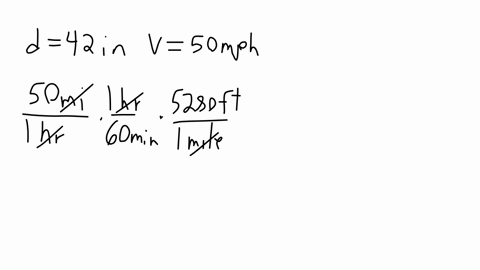 d = 42 in V = 50 mph
50 mi / 1 hr · 1 hr / 60 min · 5280 ft / 1 mile